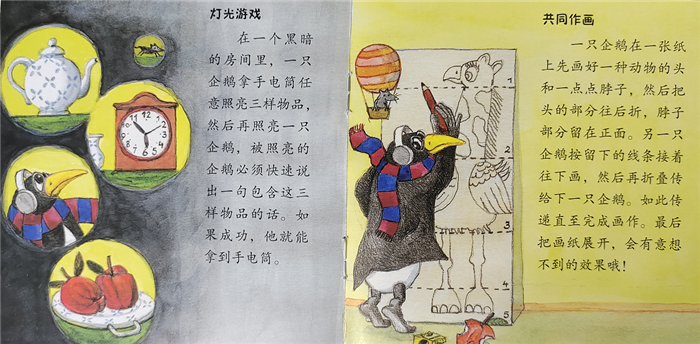 灯光游戏
在一个黑暗
的房间里，一只
企鹅拿手电筒任
意照亮三样物品，
然后再照亮一只
企鹅，被照亮的
企鹅必须快速说
出一句包含这三
样物品的话。如
果成功，他就能
拿到手电筒。
共同作画
一只企鹅在一张纸
上先画好一种动物的头
和一点点脖子，然后把
头的部分往后折，脖子
部分留在正面。另一只
企鹅按留下的线条接着
往下画，然后再折叠传
给下一只企鹅。如此传
递直至完成画作。最后
把画纸展开，会有意想
不到的效果哦！
1
2
3
4
5